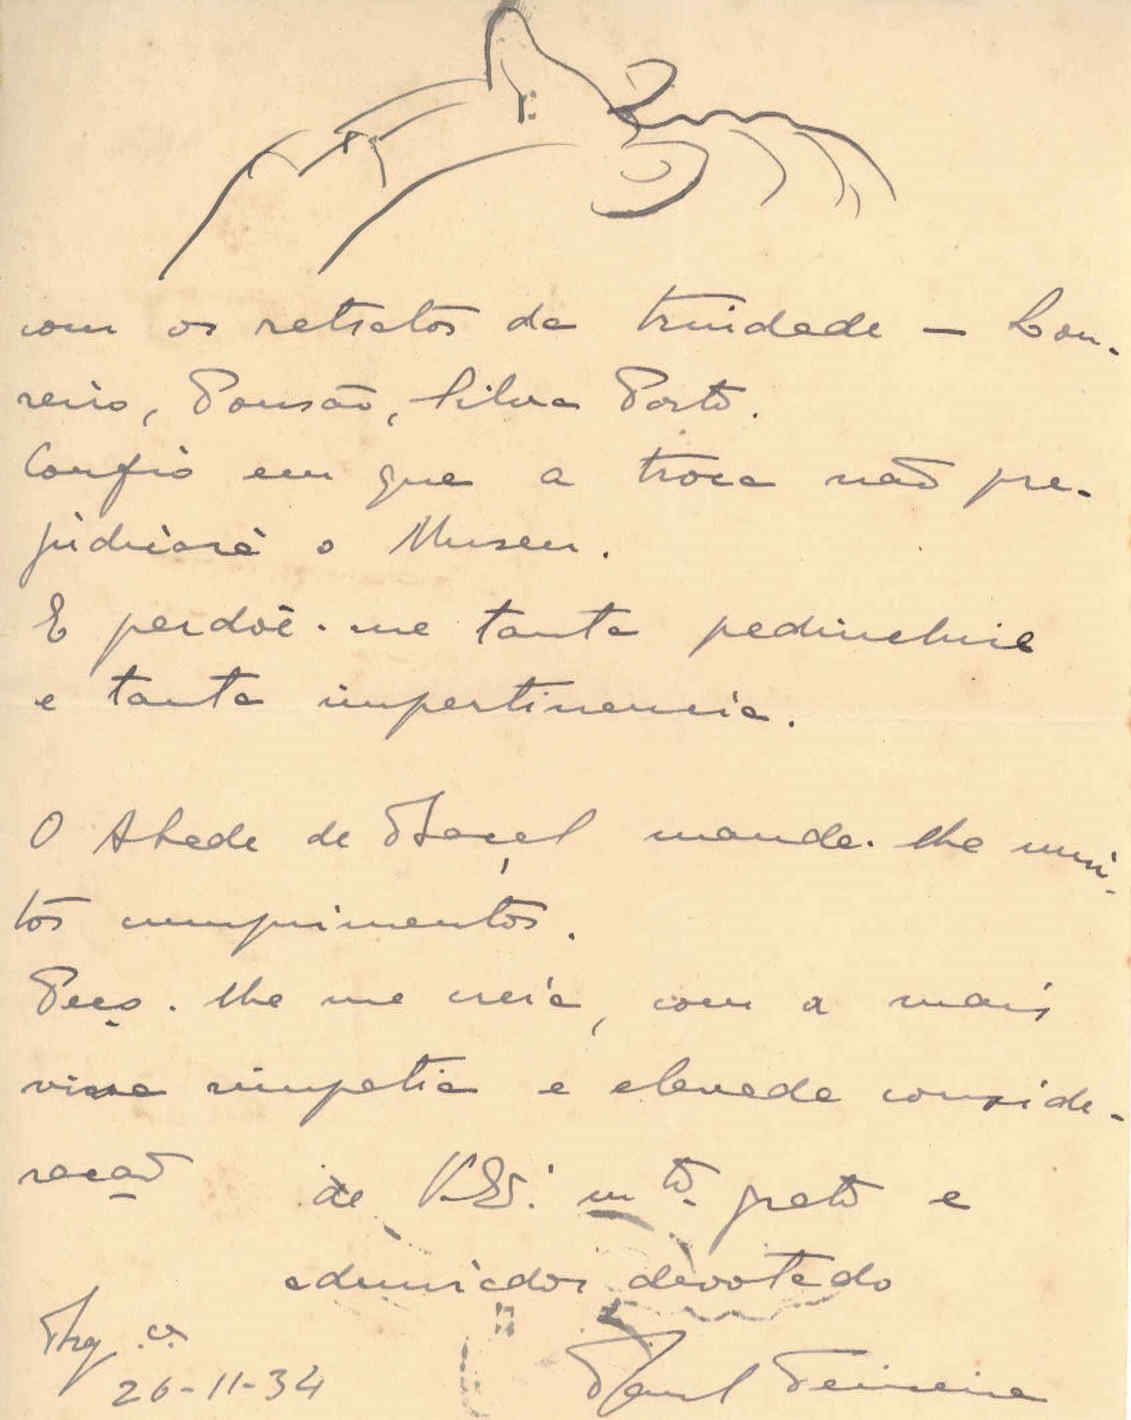 com os retratos da trindade — Lou-
reiro, Pousão, Silva Porto.
Confio em que a troca não pre-
judicará o Museu.
E perdôe-me tanta pedinchice
e tanta impertinencia.
O Abade de Baçal manda-lhe mui-
tos cumprimentos.
Peço-lhe me creia, com a mais
viva simpatia e elevada conside-
ração de V. Ex.ª m.to grato e
admirador devotado
26-11-34 Raul Teixeira